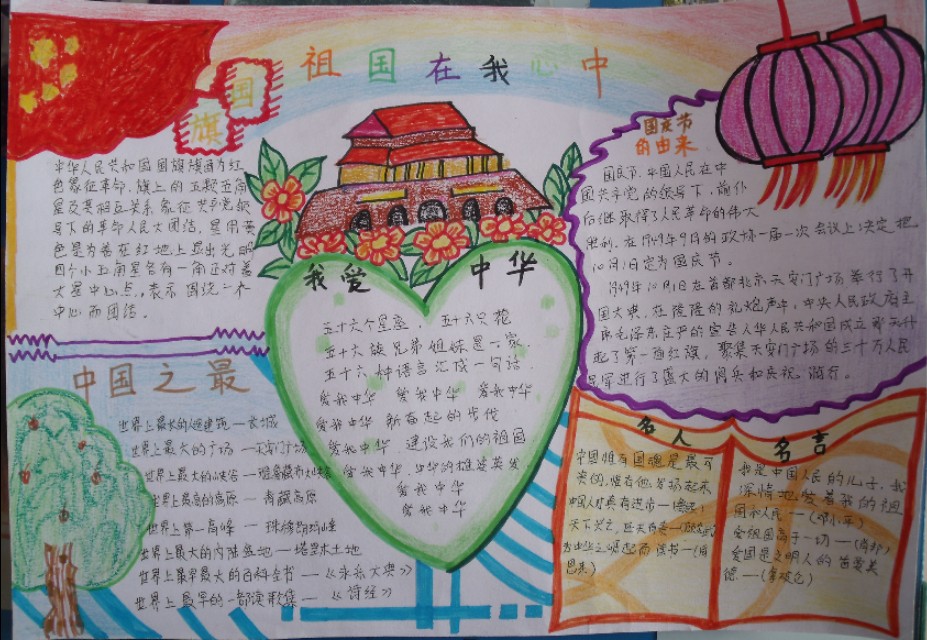 祖国在我心中
国旗
中华人民共和国国旗旗面为红
色象征革命,旗上的五颗五角
星及其相互关系象征共产党领
导下的革命人民大团结。星用黄
色是为着在红地上显出光明
四个小五角星各有一角正对着
大星中心点,表示围绕一个
中心而团结。
国庆节
的由来
国庆节,中国人民在中
国共产党的领导下,前仆
后继取得了人民革命的伟大
胜利。在1949年9月的政协一届一次会议上决定把
10月1日定为国庆节。
1949年10月1日在首都北京天安门广场举行了开
国大典,在隆隆的礼炮声中,中央人民政府主
席毛泽东庄严的宣告
人华人民共和国成立
起了第一面红旗,聚集天安门广场的三十万人民
军进行了盛大的阅兵和庆祝游行。
我爱中华
五十六个星座,五十六只花
五十六族兄弟姐妹是一家,
五十六种语言汇成一句话
爱我中华 爱我中华 爱我中华
爱我中华 新奋起的步伐
爱我中华,建设我们的祖国
爱我中华,中华的雄姿英发,
爱我中华
爱我中华
中国之最
世界上最长的建筑—长城
世界上最大的广场—天安门广场
世界上最大的峡谷—
世界上最高的高原—青藏高原
世界第一高峰—珠穆朗玛峰
世界上最大的内陆盆地—塔里木土地
世界上最早最大的百科全书—《永乐大典》
世界上最早的一部诗歌集—《诗经》
名人
中国惟有国魂是最可
贵的,惟有他发扬起来
中国人才真有进步—
天下兴亡,匹夫有责—
为中华之崛起而读书—(周
恩来)
名言
我是中国人民的儿子,我
深情地爱着我的祖
国和人民—(邓小平)
爱祖国高于一切—
爱国是文明人的首要美
德—